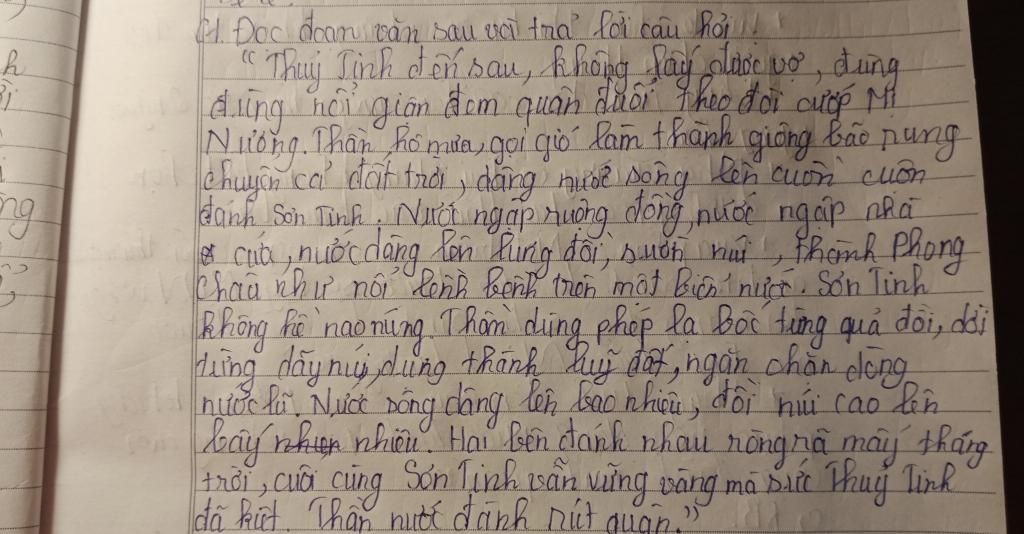 1. Đọc đoạn văn sau và trả lời câu hỏi.
"Thuỷ Tinh đến sau, không lấy được vợ, đùng
đùng nổi giận đem quân đuổi theo đòi cướp Mị
Nương. Thần hô mưa, gọi gió làm thành giông bão rung
chuyển cả đất trời, dâng nước sông lên cuồn cuộn
đánh Sơn Tinh. Nước ngập ruộng đồng, nước ngập nhà
cửa, nước dâng lên lưng đồi, sườn núi, thành Phong
Châu như nổi lềnh bềnh trên một biển nước. Sơn Tinh
không hề nao núng. Thần dùng phép lạ bốc từng quả đồi, dời
từng dãy núi, dựng thành luỹ đất, ngăn chặn dòng
nước lũ. Nước sông dâng lên bao nhiêu, đồi núi cao lên
bấy nhiêu. Hai bên đánh nhau ròng rã mấy tháng
trời, cuối cùng Sơn Tinh vẫn vững vàng mà sức Thuỷ Tinh
đã kiệt. Thần nước đành rút quân."